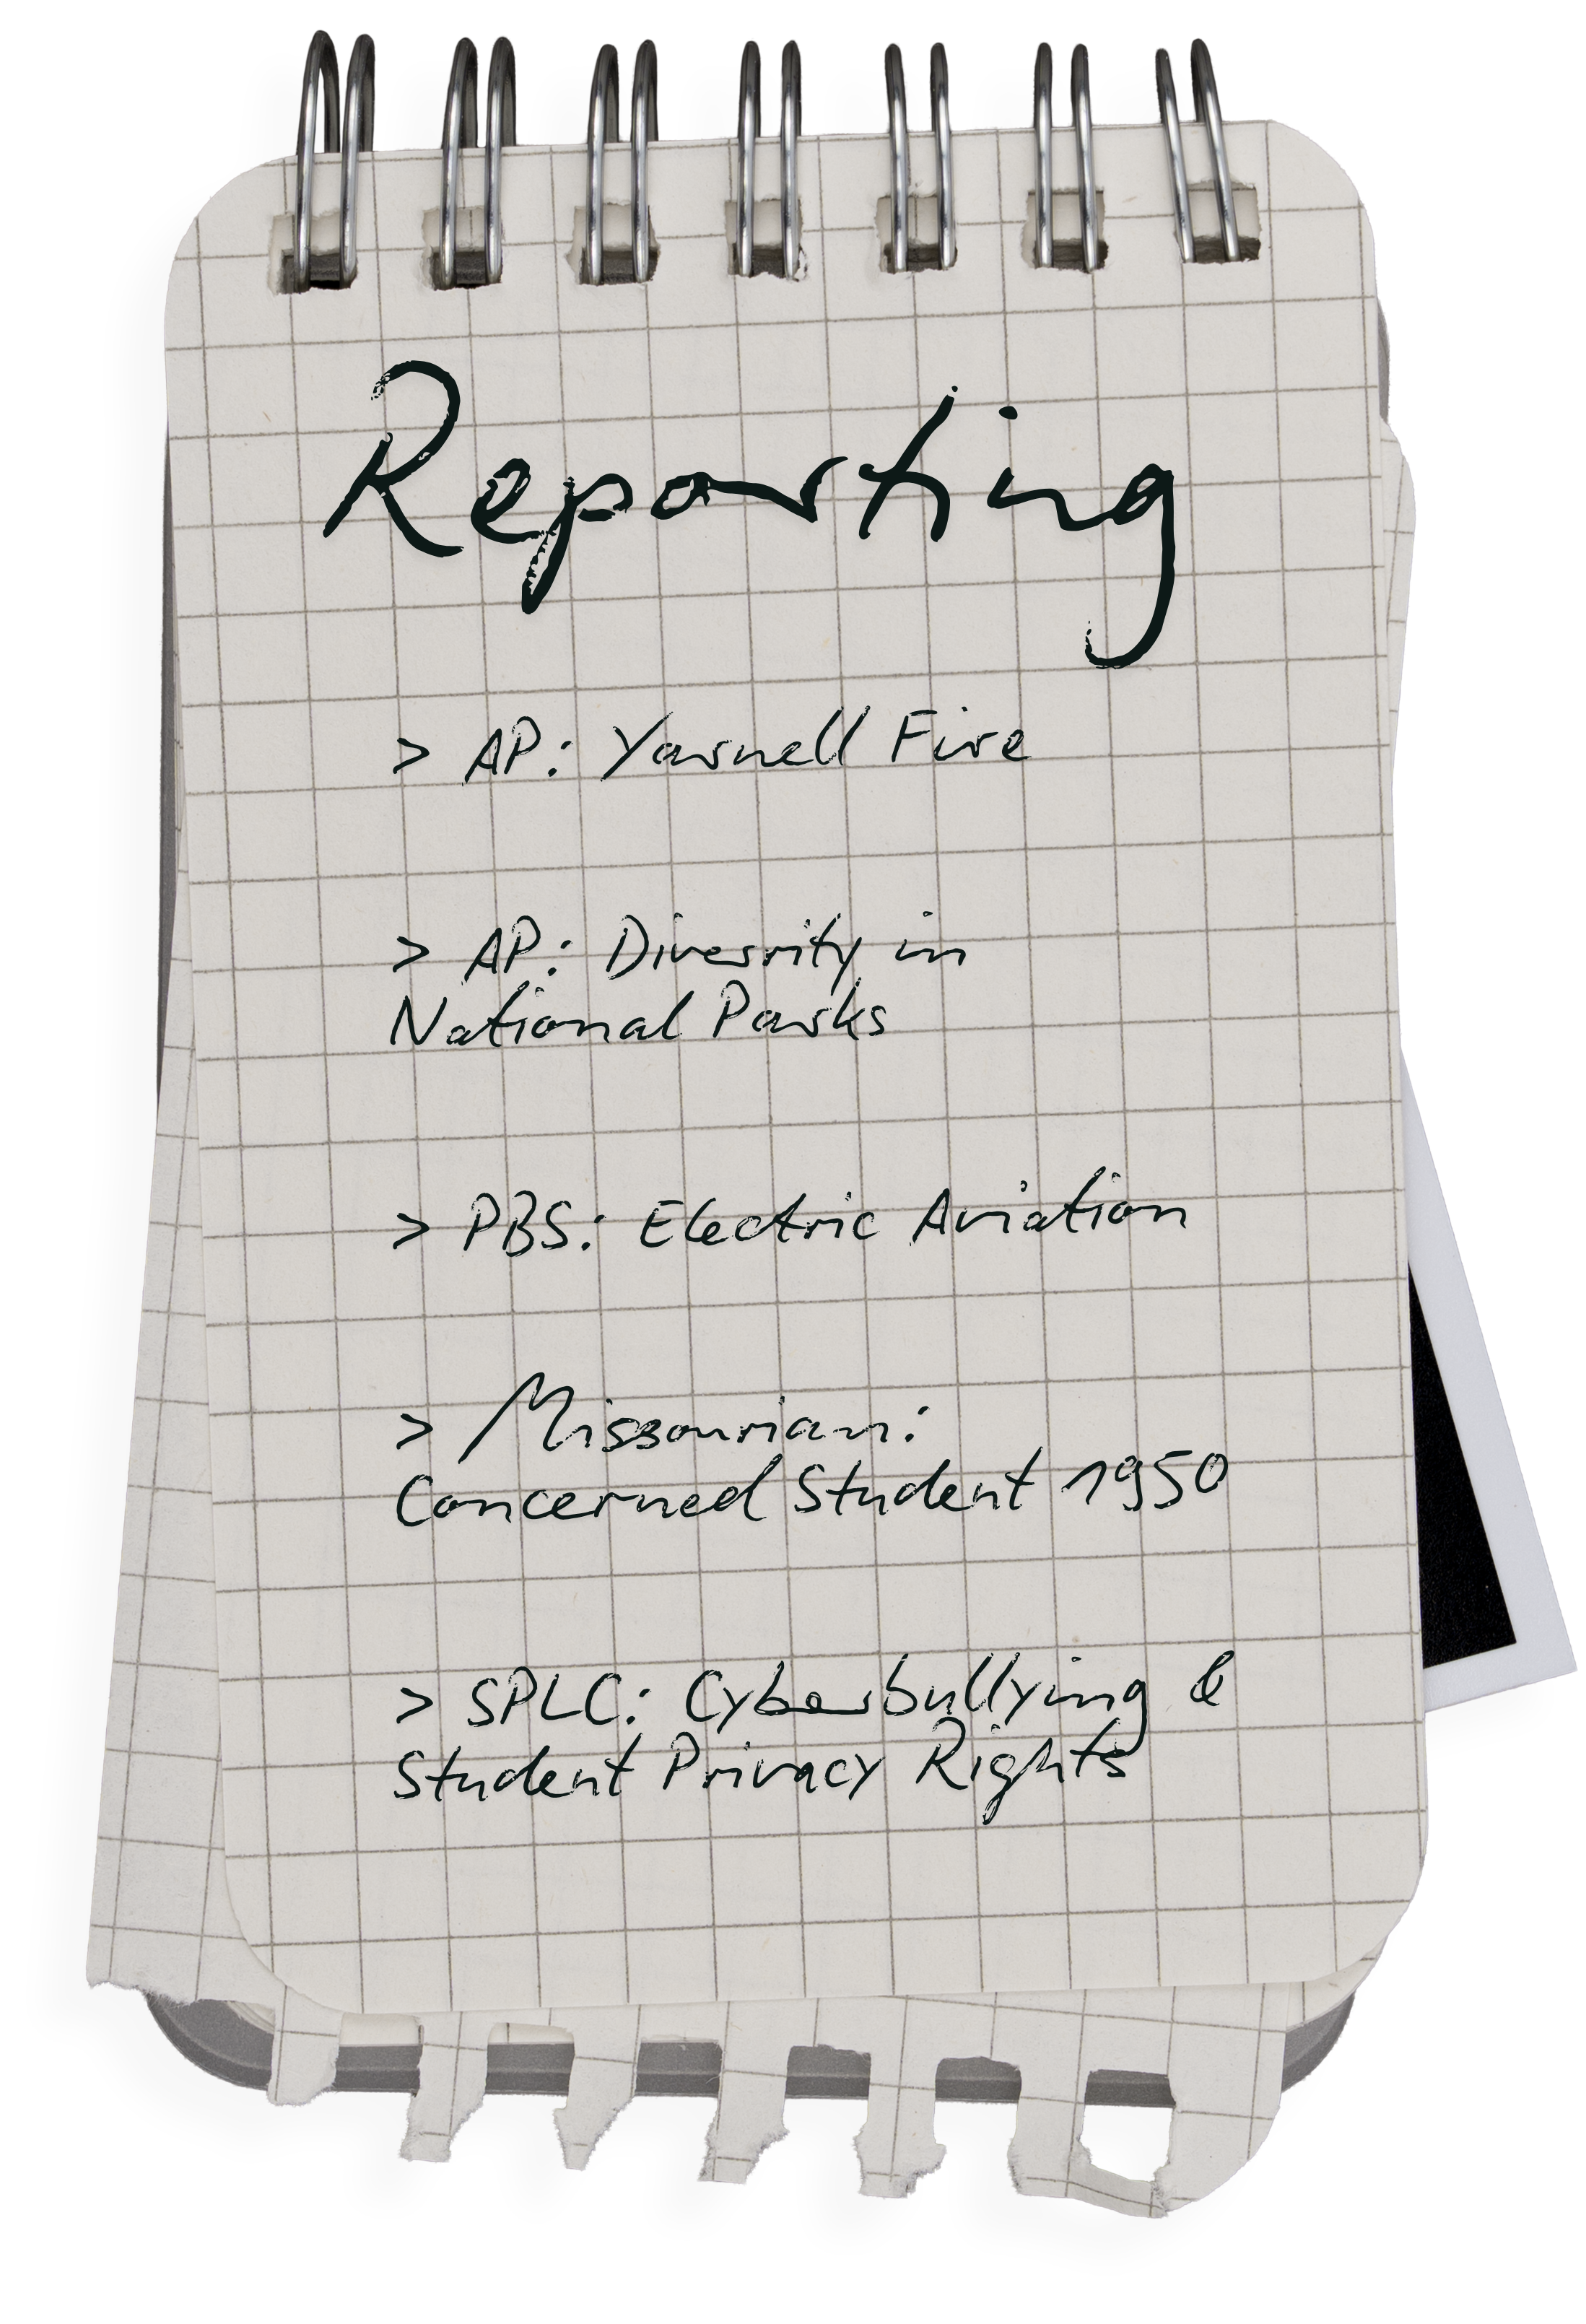 Reporting
> AP: Yarnell Fire
> AP: Diversity in
National Parks
> PBS: Electric Aviation
> Missourian:
Concerned Student 1950
> SPLC: Cyberbullying &
Student Privacy Rights